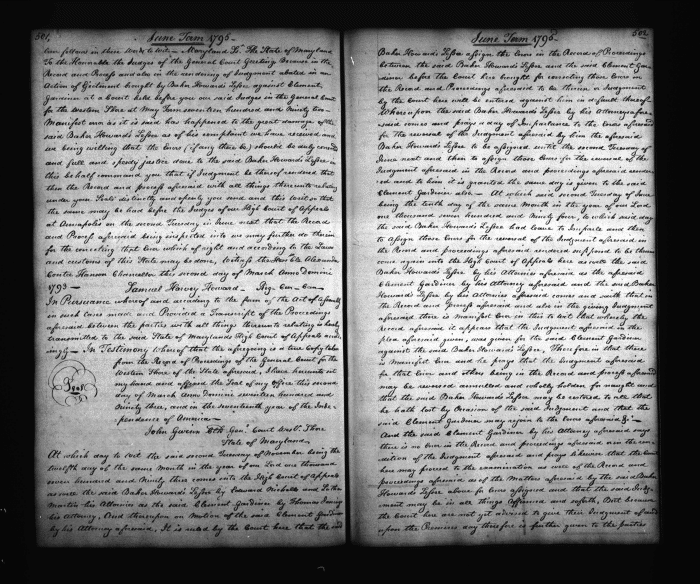 501
June Term 1795
law follows in these words to wit - Maryland Sc. The State of Maryland
To the Honorable the Judges of the General Court Greeting Because in the
Record and Process and also in the rendering of Judgment abated in an
Action of Ejectment brought by Baker Howards Lessee against Clement
Gardiner at a Court held before you our said Judges in the General Court
for the Western Shore at May Term seventeen hundred and Ninety two
Manifest error as it is said has happened to the great damage of the
said Baker Howards Lessee as of his complaint we have received and
we being willing that the Errors (if any there be) should be duly corrected
and full and speedy justice done to the said Baker Howards Lessee in
this behalf command you that if Judgment be thereof rendered that
then the Record and process aforesaid with all things thereunto relating
under your Seals distinctly and openly you send and this Writ so that
the same may be had before the Judges of our High Court of Appeals
at Annapolis on the second Tuesday in June next that the Record
and Process aforesaid being inspected into we may further do therein
for the correcting that Error which of right and according to the Laws
and customs of this State may be done, Witness the Honble Alexander
Contee Hanson Chancellor this second day of March Anno Domini
1793 - Samuel Harvey Howard - Reg. Cur. Can
In Persuance whereof and according to the form of the Act of Assembly
in such cases made and Provided a Transcript of the Proceedings
aforesaid between the parties with all things thereunto relating is hereby
transmitted to the said State of Marylands High Court of Appeals accord-
ingly - In Testimony whereof that the aforegoing is a true Copy taken
from the Record of Proceedings of the General Court for the
Western Shore of the State aforesaid, I have hereunto set
my hand and affixed the Seal of my Office this second
day of March Anno Domini seventeen hundred and
Ninety three, and in the seventeenth year of the Inde-
pendence of America -
Seal
John Gwinn Clk Genl. Court West. Shore
State of Maryland
At which day to wit the said second Tuesday of November being the
twelfth day of the same Month in the year of our Lord one thousand
seven hundred and Ninety three comes into the High Court of Appeals
as well the said Baker Howards Lessee by Edward Nicholls and Luther
Martin his Attornies as the said Clement Gardiner by Thomas Jenings
his Attorney, And thereupon on Motion of the said Clement Gardiner
by his Attorney aforesaid, It is ruled by the Court here that the said
502
June Term 1795
Baker Howards Lessee assign the Errors in the Record and Proceedings
between the said Baker Howards Lessee and the said Clement Gar-
diner before the Court here brought for correcting these Errors in
the Record and Proceedings aforesaid to be therein or Judgment
by the Court here will be entered against him in default thereof
Whereupon the said Baker Howards Lessee by his Attornies afore-
said comes and prays a day of Imparlance to the Errors aforesaid
for the reversal of the Judgment aforesaid by him the aforesaid
Baker Howards Lessee to be assigned until the second Tuesday of
June next and then to assign those Errors for the reversal of the
Judgment aforesaid in the Record and proceedings aforesaid render-
ed and to him it is granted the same day is given to the said
Clement Gardiner also - At which said second Tuesday of June
being the tenth day of the same Month in the year of our Lord
one thousand seven hundred and Ninety four, to which said day
the said Baker Howards Lessee had leave to Imparle and then
to assign those Errors for the reversal of the Judgment aforesaid in
the Record and proceedings aforesaid rendered supposed to be therein
come again into the High Court of Appeals here as well the said
Baker Howards Lessee by his Attornies aforesaid as the aforesaid
Clement Gardiner by his Attorney aforesaid and the said Baker
Howards Lessee by his Attornies aforesaid comes and saith that in
the Record and Process aforesaid and also in the giving Judgment
aforesaid there is manifest Error in this to wit that whereby the
Record aforesaid it appears that the Judgment aforesaid in the
plea aforesaid given, was given for the said Clement Gardiner
against the said Baker Howards Lessee, Therefore in that there
is Manifest Error and he prays that the Judgment aforesaid
for that Error and others being in the Record and process aforesaid
may be reversed annulled and wholly holden for naught and
that the said Baker Howards Lessee may be restored to all that
he hath lost by Occasion of the said Judgment and that the
said Clement Gardiner may rejoin to the Errors aforesaid &c -
And the said Clement Gardiner by his Attorney aforesaid says
there is no Error in the Record and proceedings aforesaid nor the ren-
dition of the Judgment aforesaid and prays likewise that the Court
here may proceed to the examination as well of the Record and
proceedings aforesaid as of the Matters aforesaid by the said Baker
Howards Lessee above for Errors assigned and that the said Judg-
ment may be in all things Affirmed and soforth, But because
the Court here are not yet advised to give their Judgment aforesaid
upon the Premises day therefore is further given to the parties